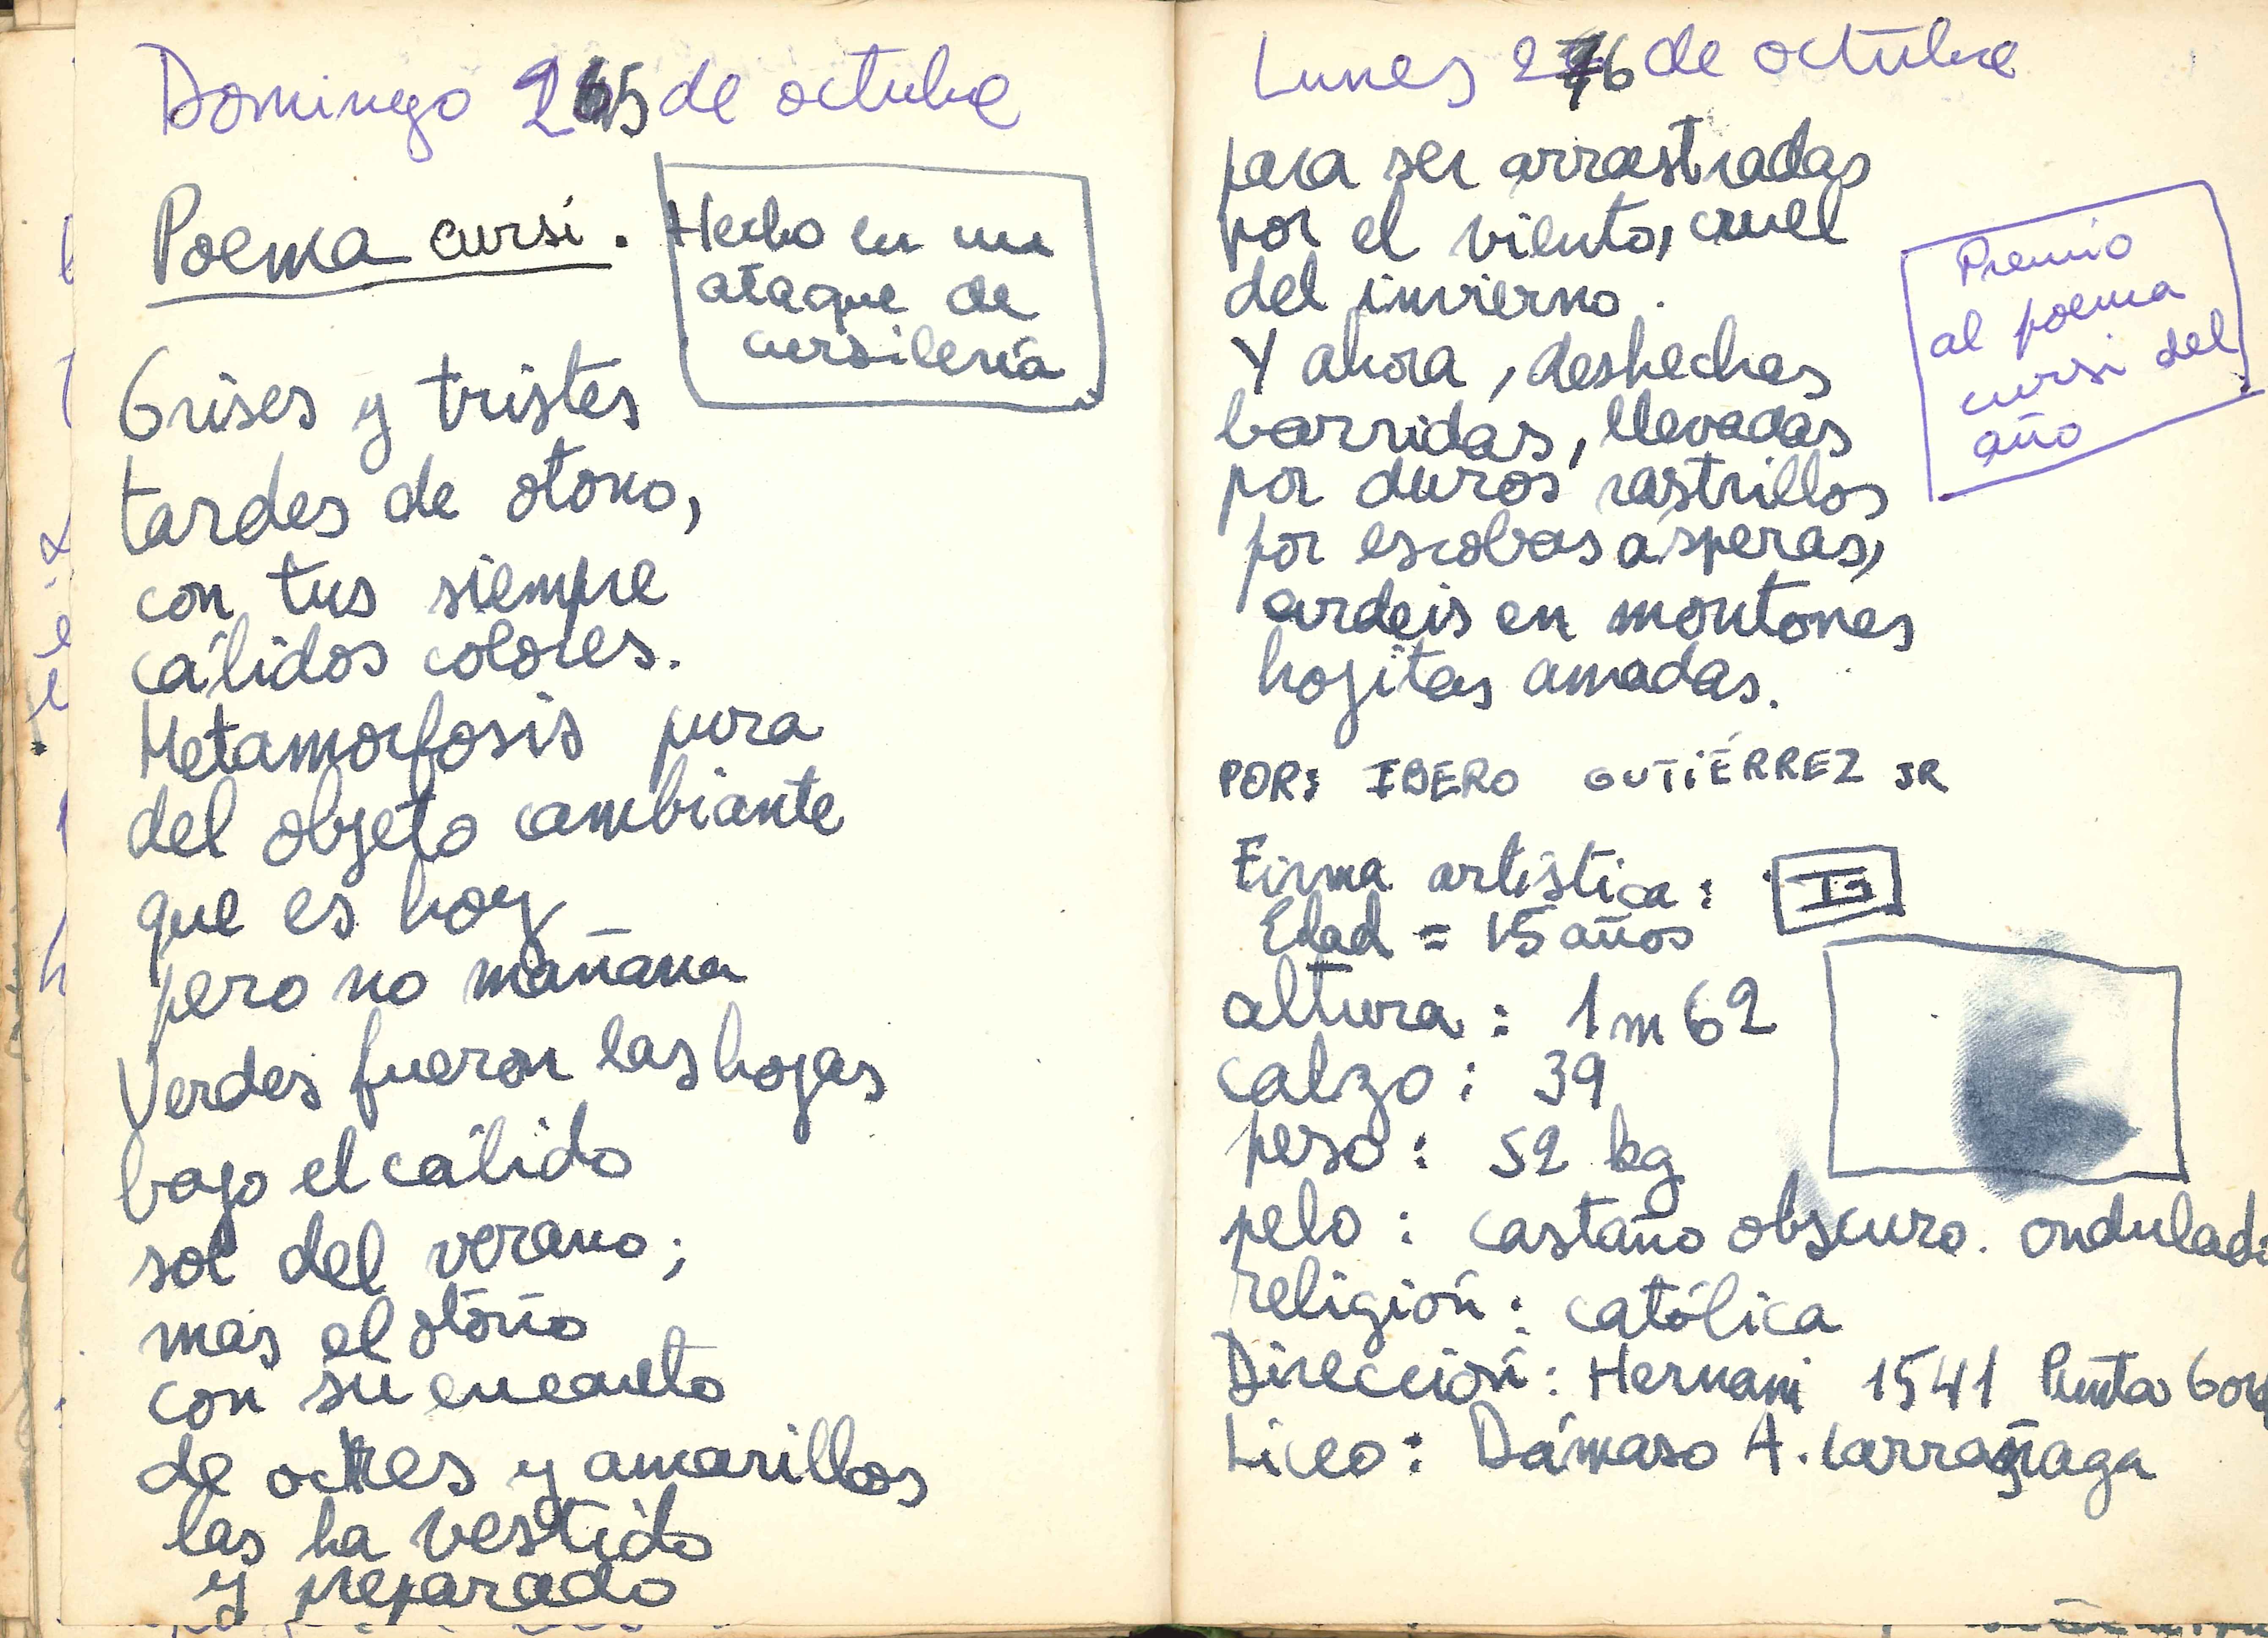 Domingo 25 de octubre
Poema cursi.
Hecho en un
ataque de
cursilería
Grises y tristes
tardes de otono,
con tus siempre
cálidos colores.
Metamorfosis pura
del objeto cambiante
que es hoy
pero no mañana
Verdes fueron las hojas
bajo el cálido
sol del verano;
mas el otoño
con su encanto
de ocres y amarillos
las ha vestido
y preparado
Lunes 26 de octubre
para ser arrastradas
por el viento, cruel
del invierno.
Y ahora, deshechas
barridas, llevadas
por duros rastrillos
por escobas asperas,
ardeis en montones
hojitas amadas.
Premio
al poema
cursi del
año
POR: IBERO GUTIÉRREZ JR
Firma artística: IG
Edad = 15 años
altura: 1 m 62
calzo: 39
peso: 52 kg
pelo: castaño obscuro. ondulado
religión: católica
Dirección: Hernani 1541 Punta Gor
Liceo: Dámaso A. Larrañaga